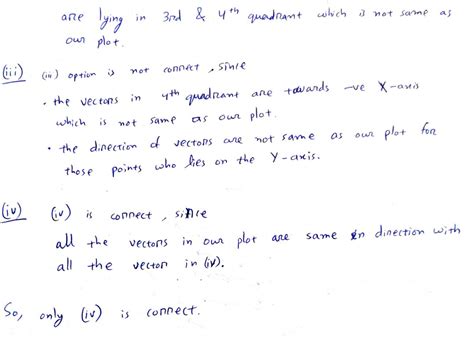 are lying in 3rd & 4th quadrant which is not same as
our plot.
(iii) (iii) option is not correct, since
• the vectors in 4th quadrant are towards -ve X-axis
which is not same as our plot.
• the direction of vectors are not same as our plot for
those points who lies on the Y-axis.
(iv) (iv) is correct, since
all the vectors in our plot are same in direction with
all the vector in (iv).
So, only (iv) is correct.